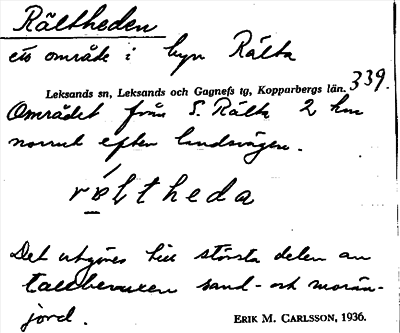 Rältheden
ett område i byn Rälta
Leksands sn, Leksands och Gagnefs tg, Kopparbergs län. 339.
Området från S. Rälta 2 km
norrut efter landsvägen.
ræ̀ltheda
Det utgöres till största delen av
tallbevuxen sand- och morän-
jord.
ERIK M. CARLSSON, 1936.